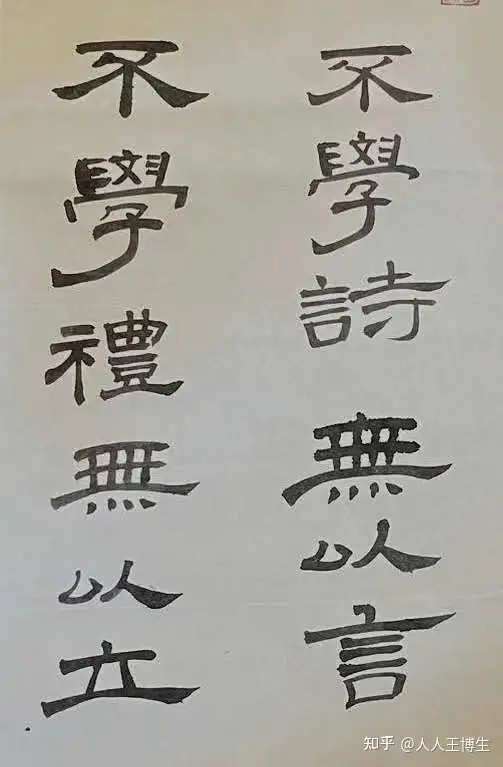 不學詩無以言
不學禮無以立
知乎 @人人王博生